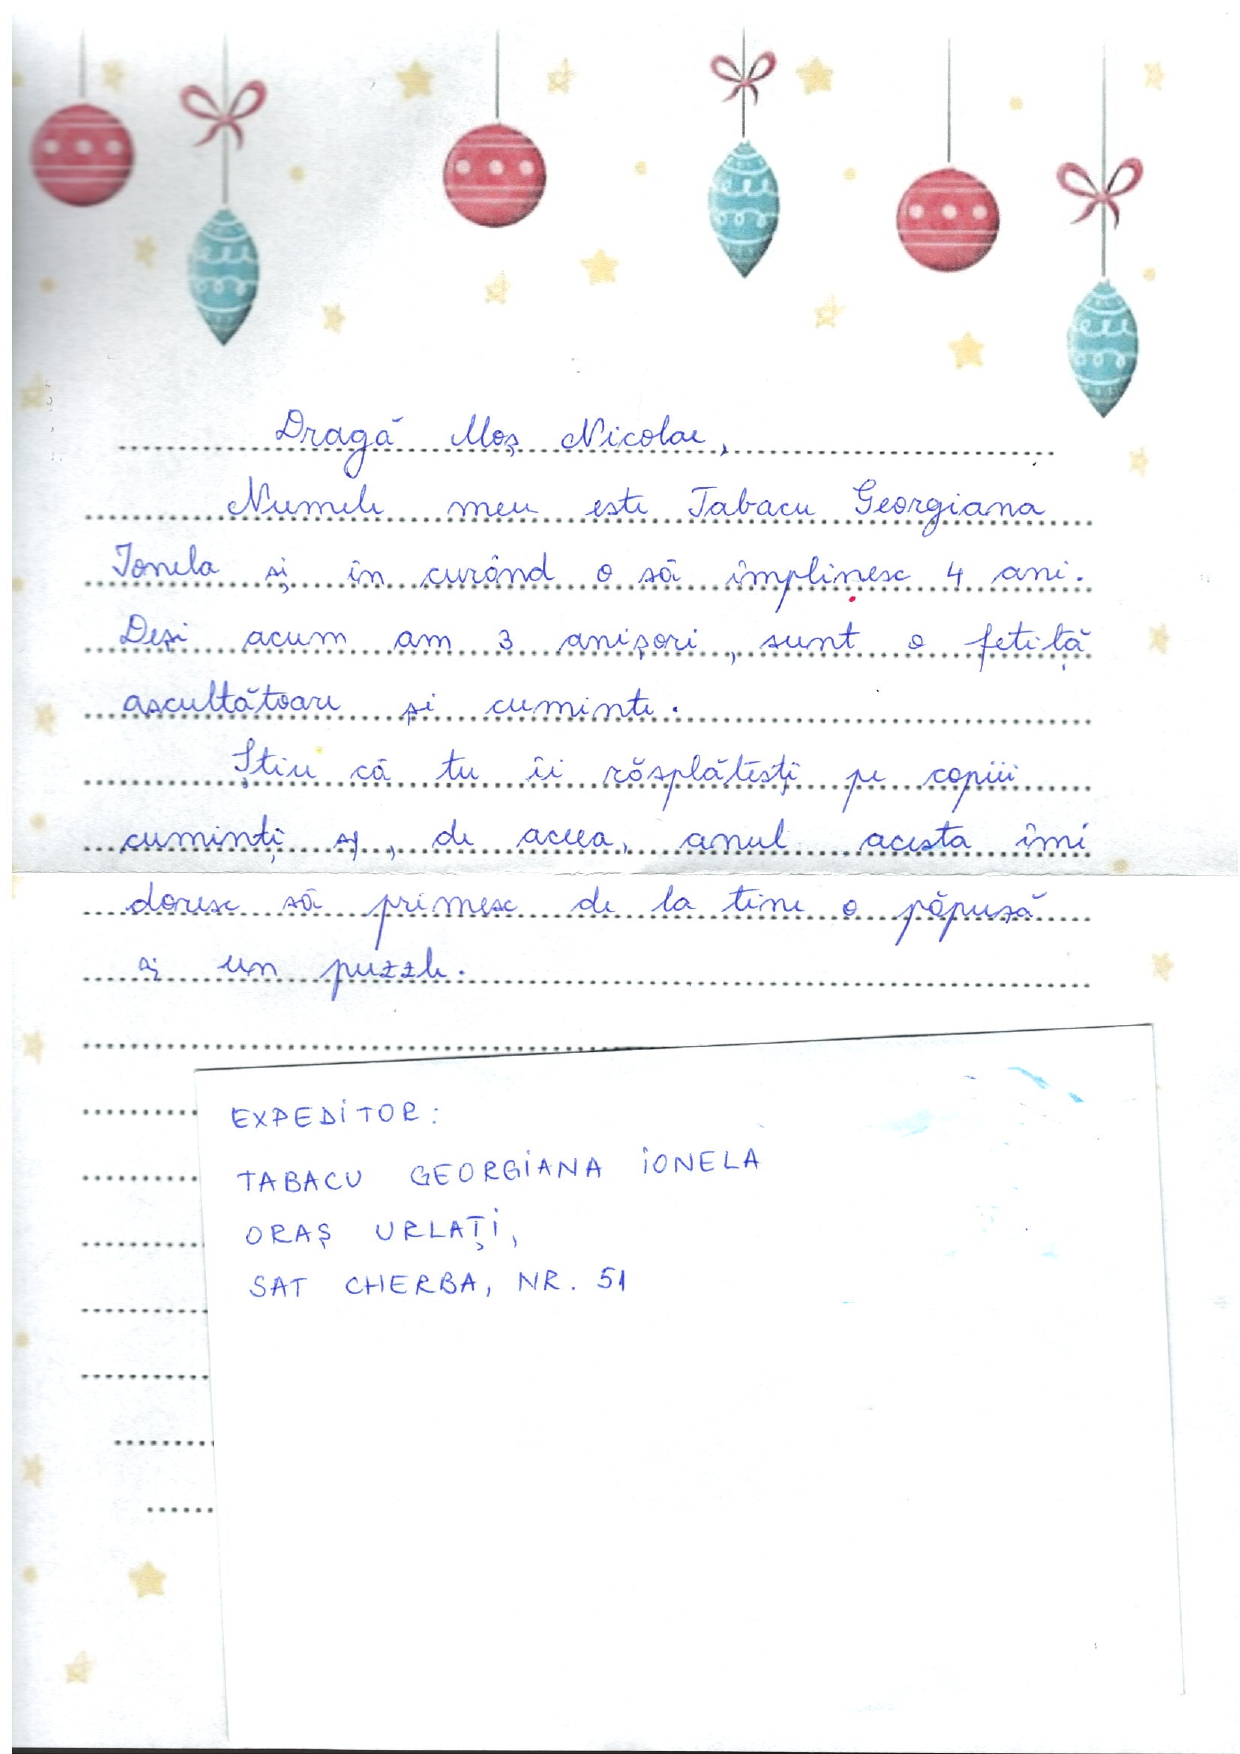 Dragă Moș Nicolae,
Numele meu este Tabacu Georgiana
Ionela și în curând o să împlinesc 4 ani.
Deși acum am 3 anișori, sunt o fetiță
ascultătoare și cuminte.
Știu că tu îi răsplătești pe copiii
cuminți și, de aceea, anul acesta îmi
doresc să primesc de la tine o păpușă
și un puzzle.
EXPEDITOR:
TABACU GEORGIANA IONELA
ORAȘ URLAȚI,
SAT CHERBA, NR. 51